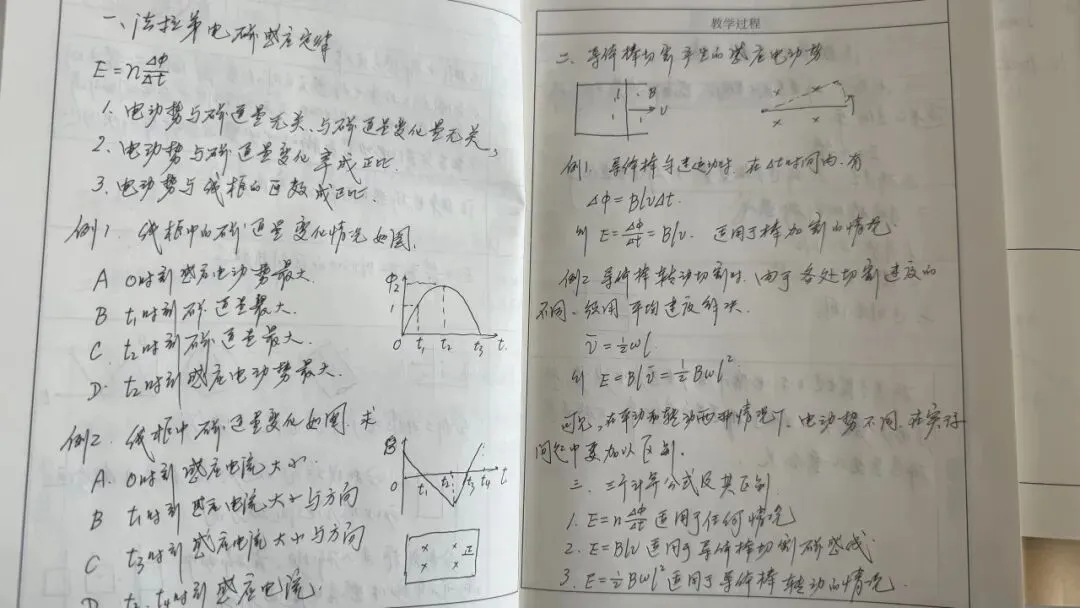 一、法拉第电磁感应定律
E=nΔΦ/Δt
1. 电动势与磁通量无关、与磁通量变化量无关,
2. 电动势与磁通量变化率成正比.
3. 电动势与线框的匝数成正比.
例1 线框中的磁通量变化情况如图.
A 0时刻感应电动势最大.
B t₁时刻磁通量最大.
C t₂时刻磁通量最大.
D. t₂时刻感应电动势最大.
Φ
2
1
0 t₁ t₂ t₃ t.
例2. 线框中磁通量变化如图. 求
A. 0时刻感应电流大小.
B t₁时刻感应电流大小与方向
C t₃时刻感应电流大小与方向
D t₂、t₄时刻感应电流.
B
0 t₁ t₂ t₃ t₄ t.
× × 正
× ×
教学过程
二、导体棒切割产生的感应电动势
B
v
× ×
× ×
例1. 导体棒匀速运动时. 在Δt时间内. 有
ΔΦ=BlvΔt.
则 E=ΔΦ/Δt=Blv. 适用于棒切割的情况.
例2 导体棒转动切割时. 由于各处切割速度的
不同. 级用平均速度解决.
v̄=½ωl.
则 E=Blv̄=½Bωl²
可见, 在平动和转动两种情况下、电动势不同. 在实际
问题中要加以区别.
三、三个计算公式及其区别
1. E=nΔΦ/Δt 适用于任何情况
2. E=Blv 适用于导体棒切割磁感线
3. E=½Bωl² 适用于导体棒转动的情况.